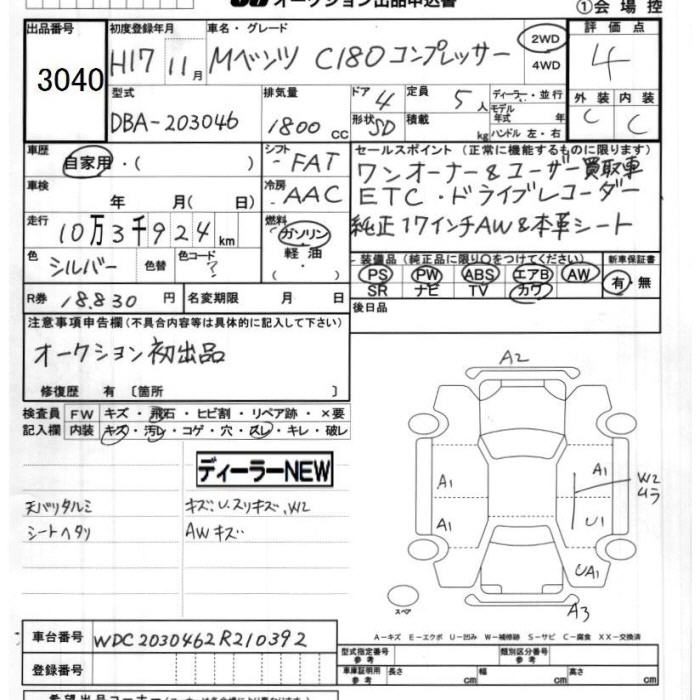 オークション出品申込書
①会場控
出品番号 3040
初度登録年月 H17 11月
車名・グレード Mベンツ C180コンプレッサー
2WD
4WD
評価点 4
外装 C 内装 C
型式 DBA-203046
排気量 1800 CC
ドア 4
形状 SD
定員 5人
積載 kg
ディーラー・並行
モデル年式 年
ハンドル 左・右
車歴 自家用・( )
シフト FAT
セールスポイント (正常に機能するものに限ります)
ワンオーナー&ユーザー買取車
ETC・ドライブレコーダー
純正17インチAW&本革シート
車検 年 月( 日)
冷房 AAC
走行 10万3千924km
燃料 ガソリン
軽油
( )
色 シルバー 色替 色コード ?
装備品 (純正品に限り○をつけてください)
PS PW ABS エアB AW
SR ナビ TV カワ
新車保証書
有・無
R券 18.830円 名変期限 月 日
後日品
注意事項申告欄 (不具合内容等は具体的に記入して下さい)
オークション初出品
修復歴 有 〔箇所 〕
検査員 FW キズ・飛石・ヒビ割・リペア跡・×要
記入欄 内装 キズ・汚レ・コゲ・穴・スレ・キレ・破レ
ディーラーNEW
天バリタルミ キズU.スリキズ.W2
シートヘタリ AWキズ
A2
A1 A1 W2
ムラ
A1 U1
UA1
スペア
A3
A-キズ E-エクボ U-凹み W-補修跡 S-サビ C-腐食 XX-交換済
車台番号 WDC2030462R210392
登録番号
型式指定番号 参考 類別区分番号 参考
車庫証明用 参考 長さ cm 幅 cm 高さ cm
希望出品コーナー